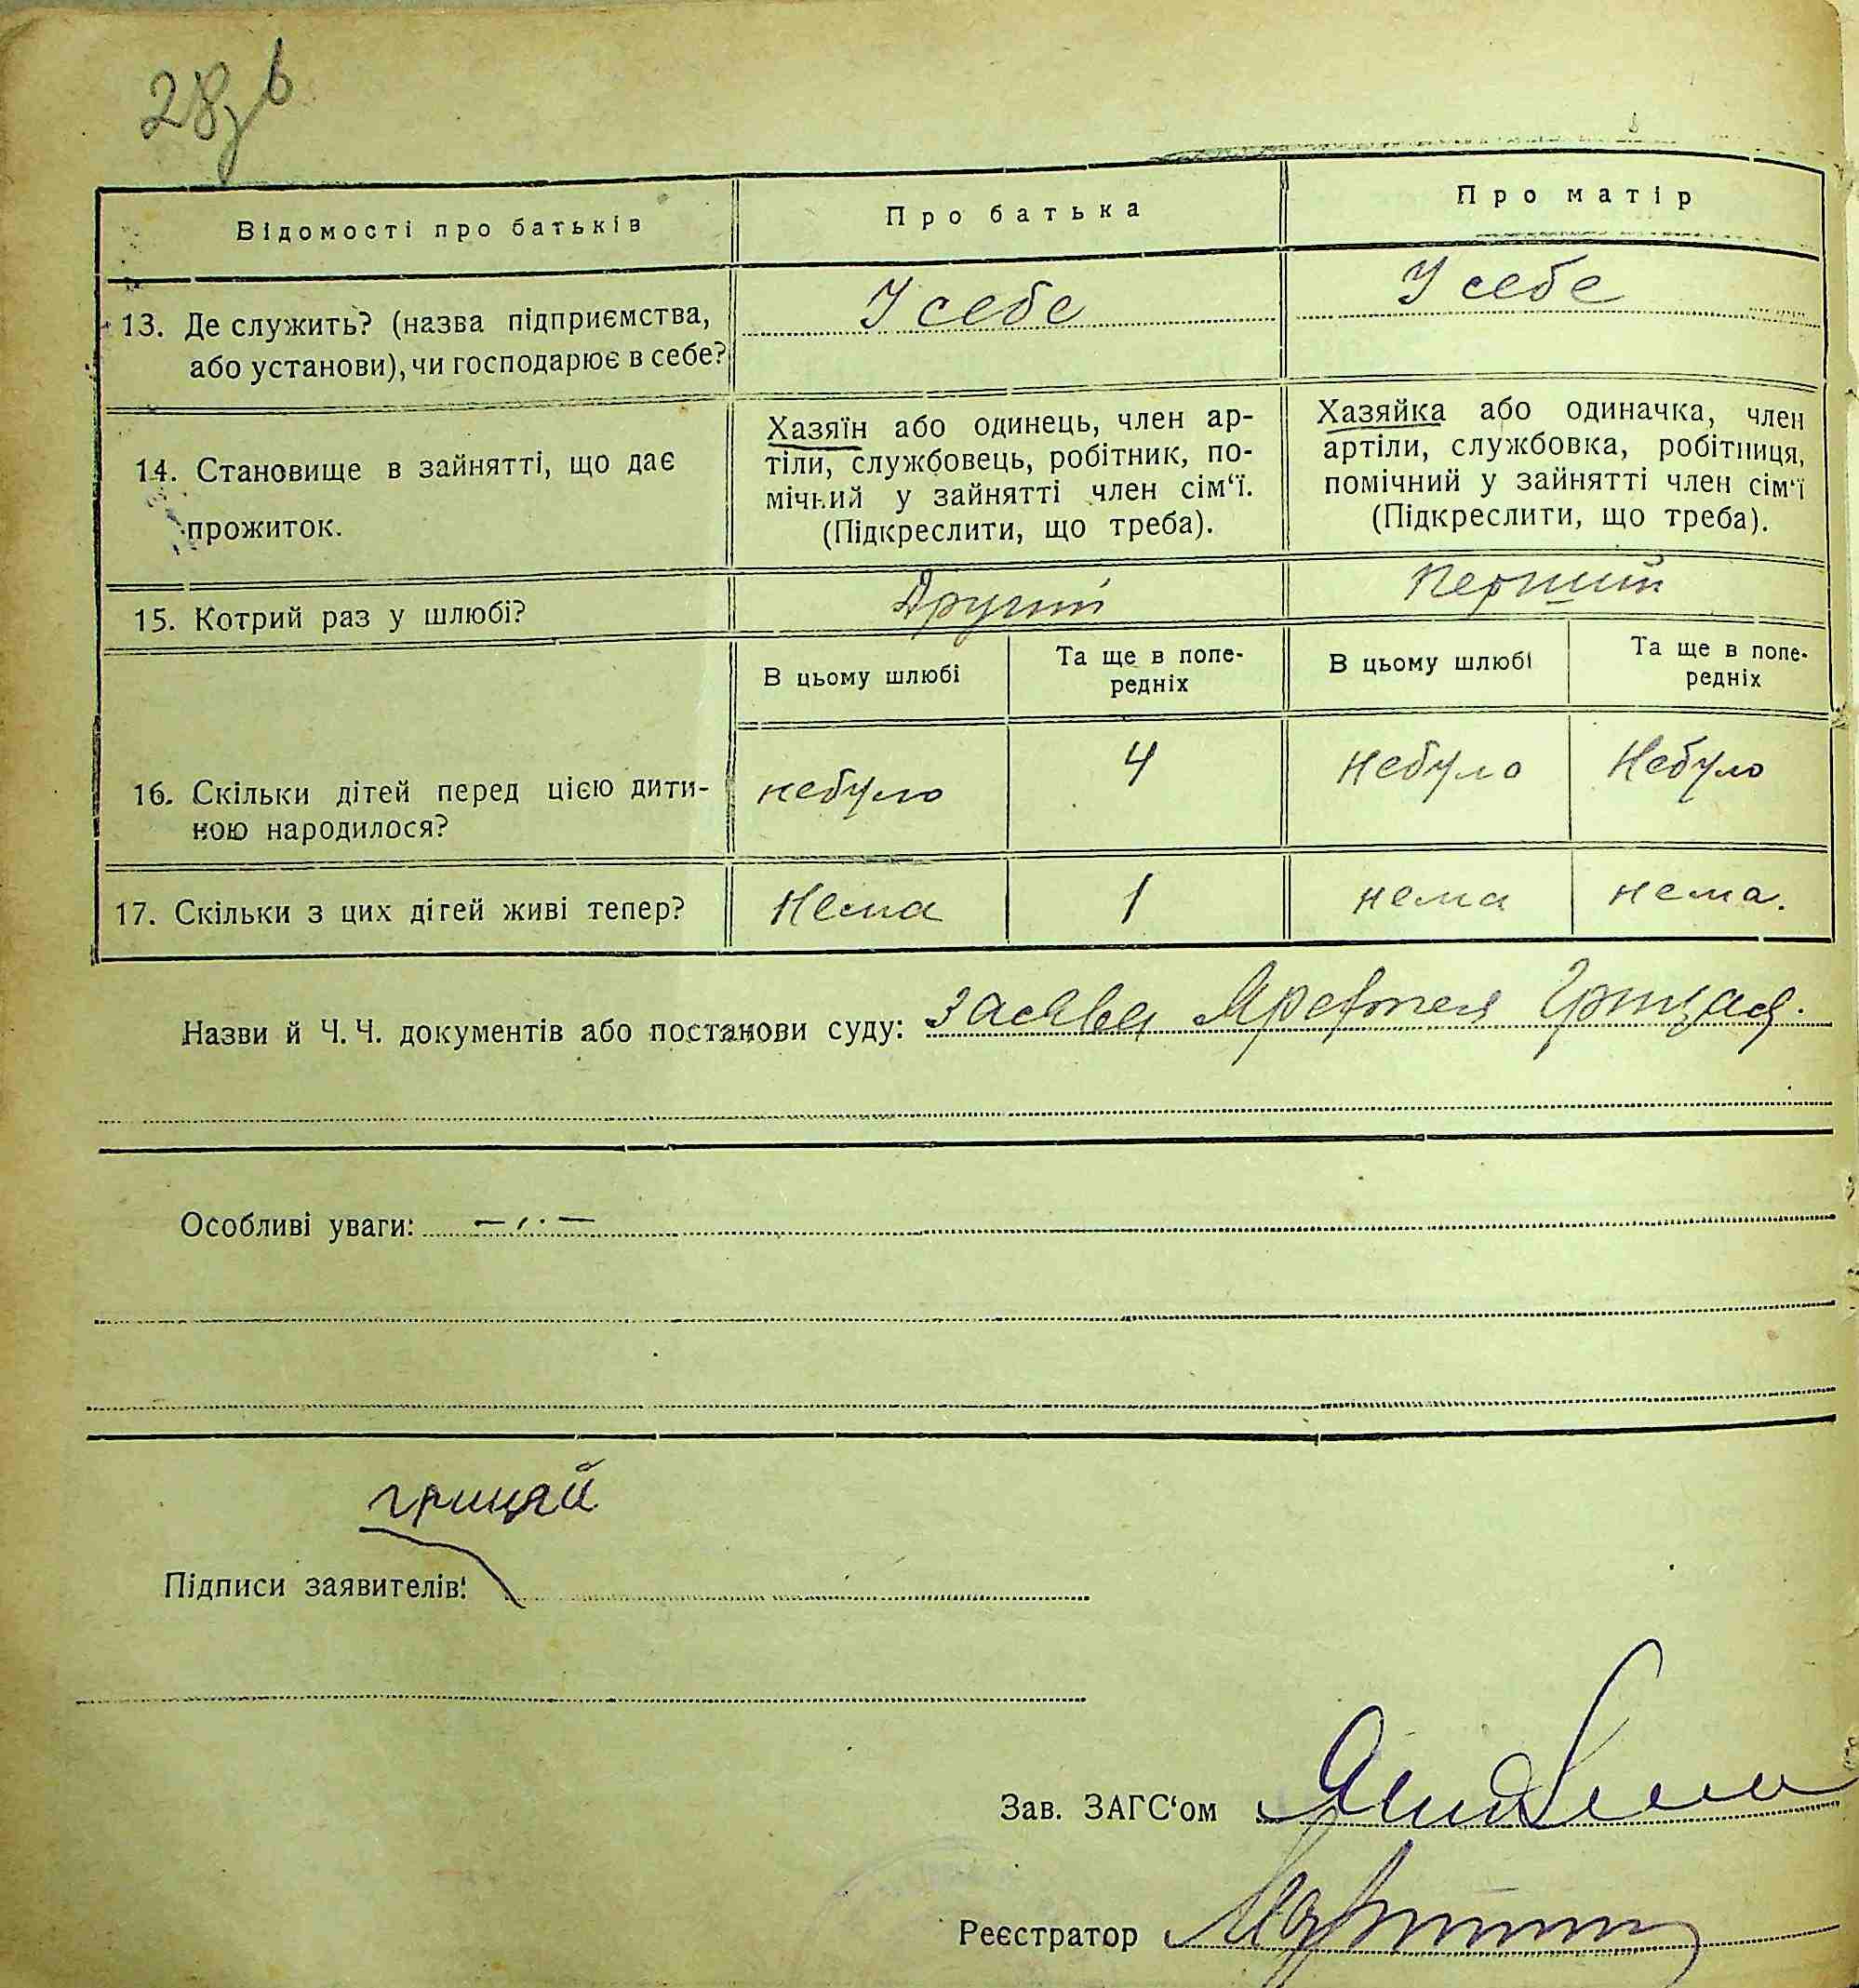 28зв
Відомості про батьків
Про батька
Про матір
13. Де служить? (назва підприємства,
або установи), чи господарює в себе?
У себе
У себе
14. Становище в зайнятті, що дає
прожиток.
Хазяїн або одинець, член ар-
тіли, службовець, робітник, по-
мічний у зайнятті член сім‘ї.
(Підкреслити, що треба).
Хазяйка або одиначка, член
артіли, службовка, робітниця,
помічний у зайнятті член сім‘ї
(Підкреслити, що треба).
15. Котрий раз у шлюбі?
Другий
Перший
В цьому шлюбі
Та ще в попе-
редніх
В цьому шлюбі
Та ще в попе-
редніх
16. Скільки дітей перед цією дити-
ною народилося?
небуло
4
Небуло
Небуло
17. Скільки з цих дітей живі тепер?
Нема
1
нема
нема.
Назви й Ч. Ч. документів або постанови суду: Заєява Грицая.
Особливі уваги:
грицай
Підписи заявителів:
Зав. ЗАГС‘ом
Реєстратор